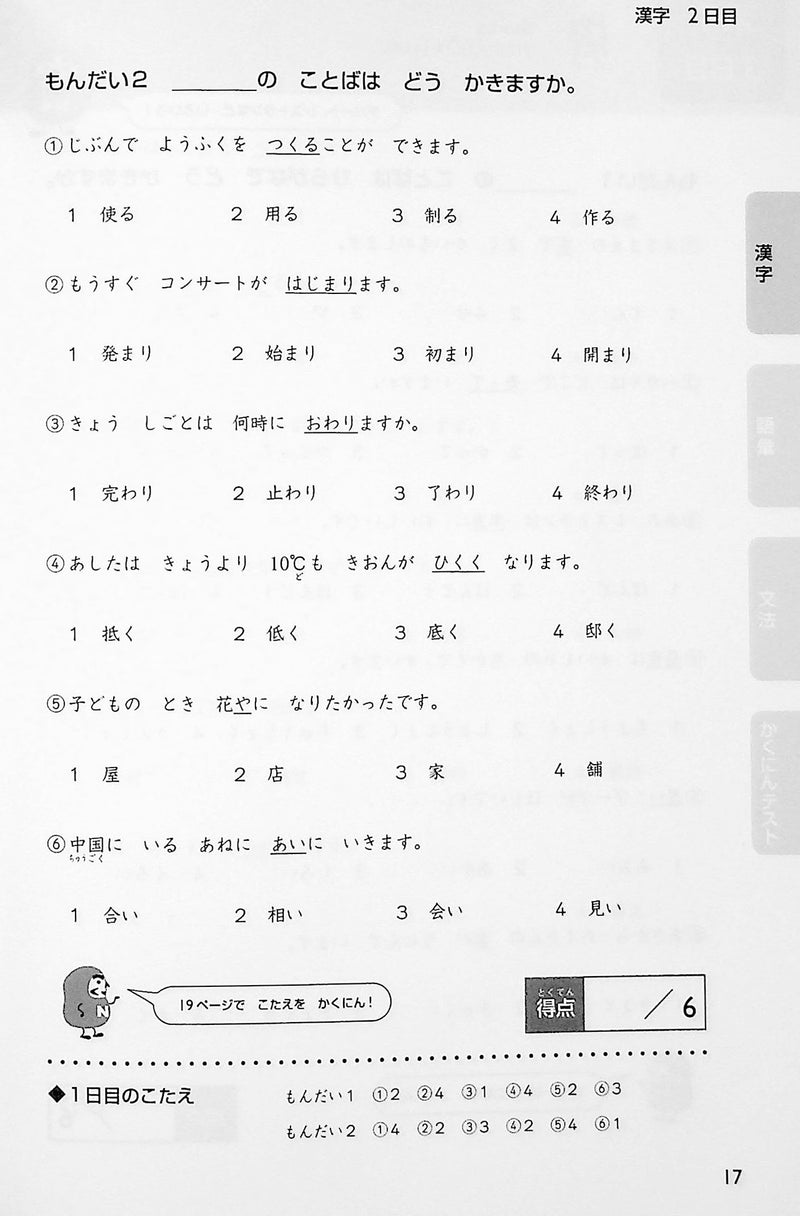 漢字 2日目
もんだい2 ______の ことばは どう かきますか。
①じぶんで ようふくを つくることが できます。
1 使る 2 用る 3 制る 4 作る
②もうすぐ コンサートが はじまります。
1 発まり 2 始まり 3 初まり 4 開まり
③きょう しごとは 何時に おわりますか。
1 完わり 2 止わり 3 了わり 4 終わり
④あしたは きょうより 10℃も きおんが ひくく なります。
ど
1 抵く 2 低く 3 底く 4 邸く
⑤子どもの とき 花やに なりたかったです。
1 屋 2 店 3 家 4 舗
⑥中国に いる あねに あいに いきます。
ちゅうごく
1 合い 2 相い 3 会い 4 見い
N
19ページで こたえを かくにん!
とくてん
得点 /6
◆1日目のこたえ
もんだい1 ①2 ②4 ③1 ④4 ⑤2 ⑥3
もんだい2 ①4 ②2 ③3 ④2 ⑤4 ⑥1
17
漢字
語彙
文法
かくにんテスト